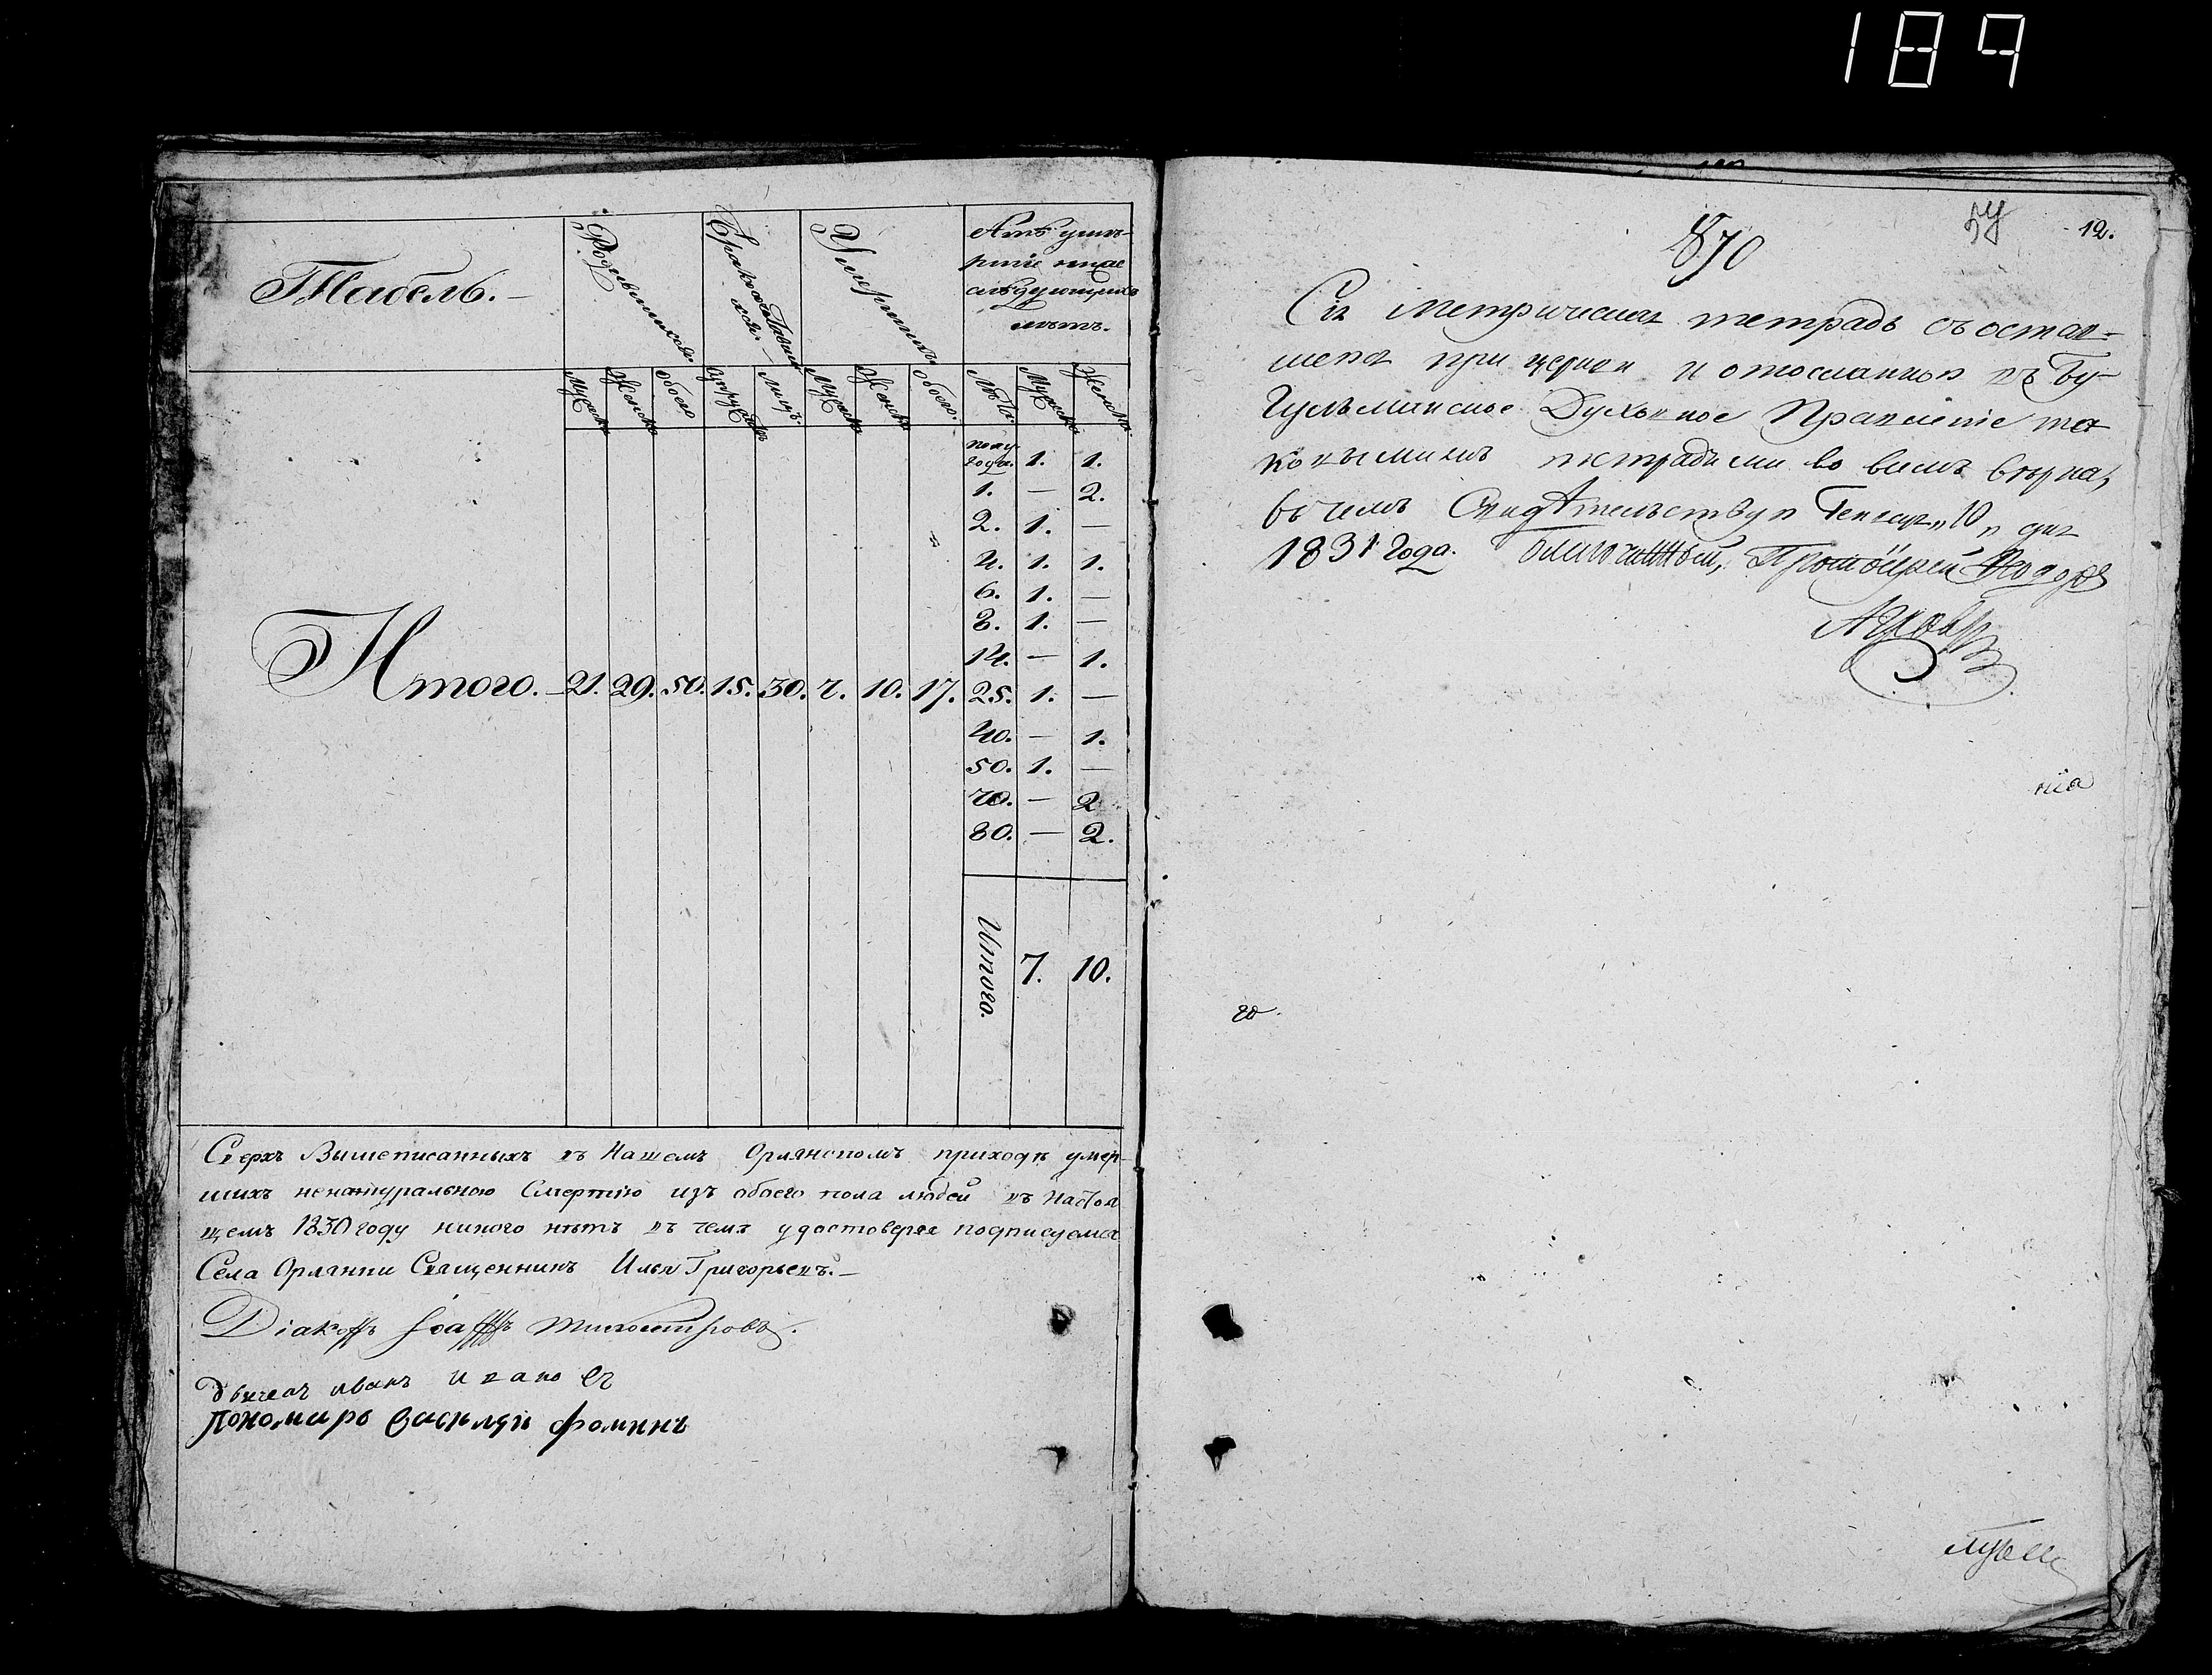 189
Табель.—
Родившихся.
Бракосочетавшихся.—
Умершихъ
Лѣтъ умершіе ниже слѣдующихъ лѣтъ.
Мужеска Женска обоего Супружествъ Лицъ. Мужеска Женска обоего. Лѣта. Мужеска Женска.
полугода. 1. 1.
1. — 2.
2. 1. —
4. 1. 1.
6. 1. —
8. 1. —
14. — 1.
Итого.— 21. 29. 50. 15. 30. 7. 10. 17. 25. 1. —
40. — 1.
50. 1. —
70. — 2
80. — 2.
Итого. 7. 10.
Сверхъ Вышеписанныхъ въ Нашемъ Орлянскомъ приходѣ умер-
шихъ ненатуральною Смертію изъ обоего пола людей въ настоя
щемъ 1830 году никого нѣтъ въ чемъ удостоверяя подписуемся
Села Орлянки Священникъ Илья Григорьевъ.—
Діаконъ Іоаннъ
дьячекъ иванъ ивановъ
пономарь василяй фоминъ
870
12.
Сія Метрическая тетрадь съ остав-
шеюся при церкви и отосланною въ Бу-
гульминское Духовное Правленіе та
ковымижъ тетрадьми во всемъ вѣрна,
въ чемъ Свидѣтельствую Генваря „10„ дня
1831 Года. благочинный, Протоіерей Ѳеодоръ
нія
го.